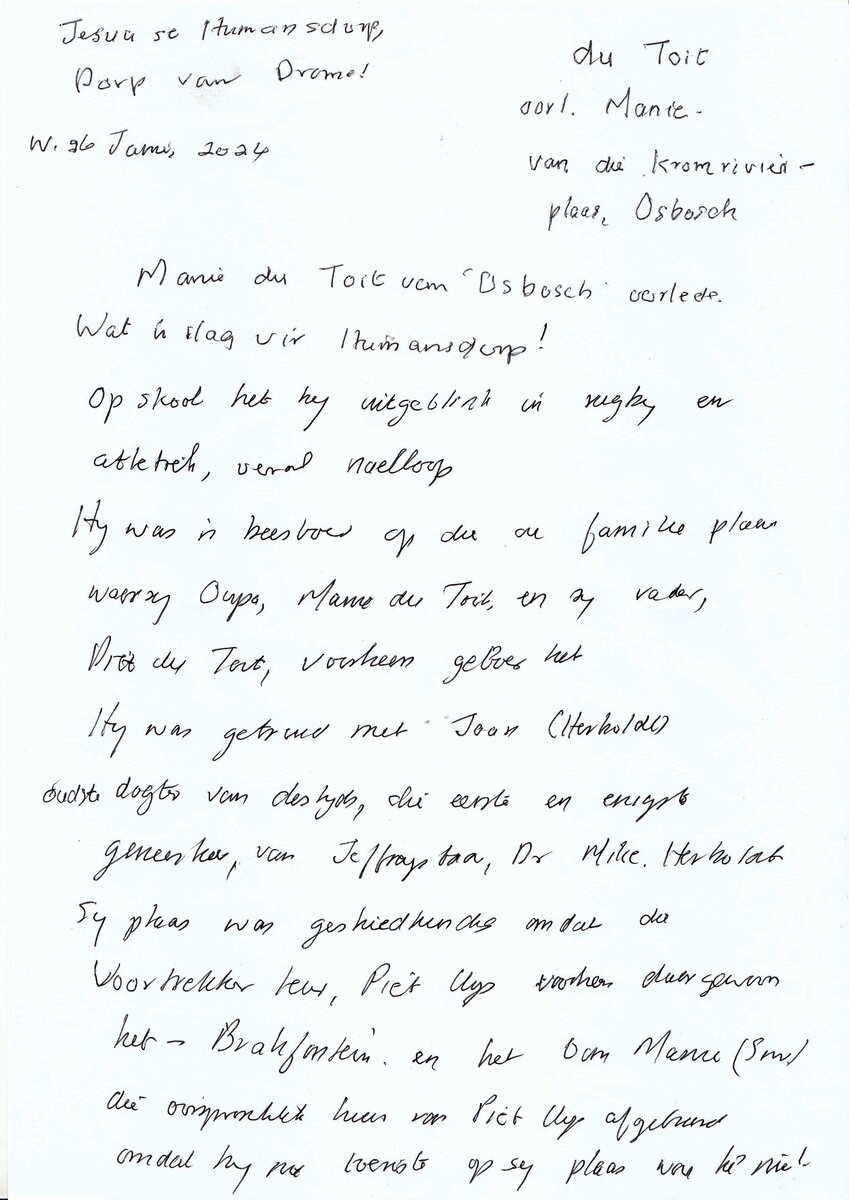 Jesua se Humansdorp,
Dorp van Drome!
W. 26 Junie, 2024
du Toit
oorl. Manie -
van die Kromrivier-
plaas, Osbosch
Manie du Toit van 'Osbosch' oorlede.
Wat 'n slag vir Humansdorp!
Op skool het hy uitgeblink in rugby en
atletiek, veral naelloop
Hy was 'n beesboer op die ou familie plaas
waar sy Oupa, Manie du Toit, en sy vader,
Piet du Toit, voorheen geboer het
Hy was getroud met Joan (Herholdt)
oudste dogter van destyds, die eerste en enigste
geneesheer, van Jeffraysbaai, Dr Mike. Herholdt
Sy plaas was geskiedkundig omdat die
Voortrekker leier, Piet Uys voorheen daar gewoon
het - Brakfontein. en het Oom Manie (Snr)
die oorspronklike huis van Piet Uys afgebrand
omdat hy nie toeriste op sy plaas wou hê nie!